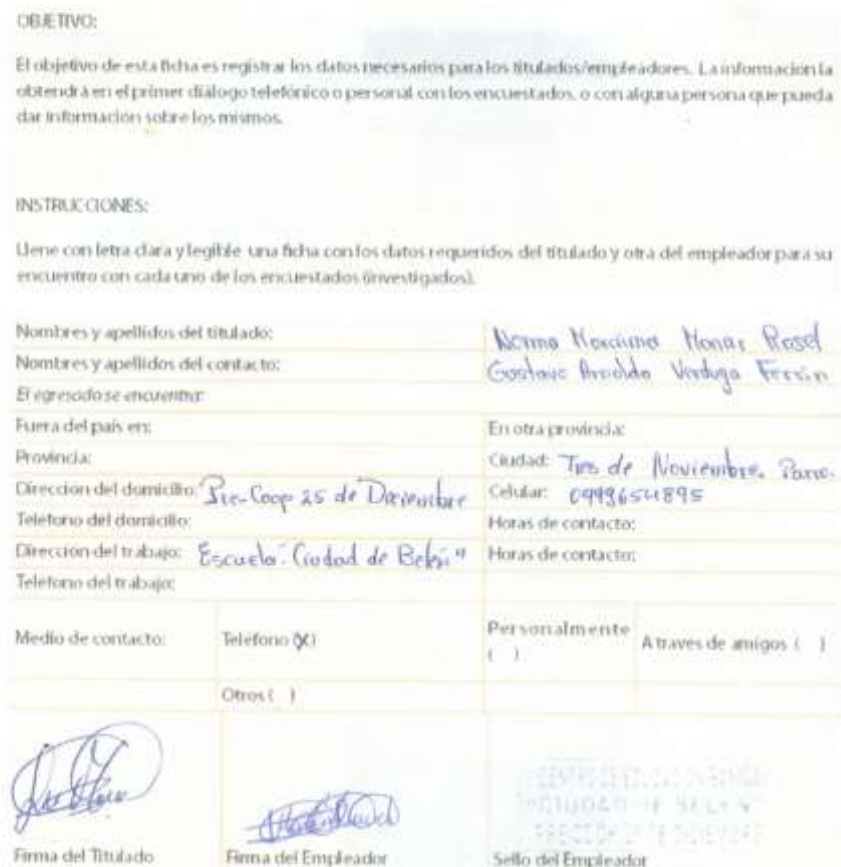 OBJETIVO:
El objetivo de esta ficha es registrar los datos necesarios para los titulados/empleadores. La informacion la
obtendrá en el primer diálogo telefónico o personal con los encuestados, o con alguna persona que pueda
dar información sobre los mismos.
INSTRUCCIONES:
Llene con letra clara y legible una ficha con los datos requeridos del titulado y otra del empleador para su
encuentro con cada uno de los encuestados (investigados).
Nombres y apellidos del titulado: Norma Monar
Nombres y apellidos del contacto: Gustavo Arnoldo Verduga
El egresado se encuentra:
Fuera del país en: En otra provincia:
Provincia: Ciudad: Tres de Noviembre. Parro.
Direccion del domicilio: Pre-Coop 25 de Diciembre Celular: 0999654895
Teléfono del domicilio: Horas de contacto:
Dirección del trabajo: Escuela "Ciudad de Belén" Horas de contacto:
Teléfono del trabajo:
Medio de contacto: Teléfono (X) Personalmente ( ) A traves de amigos ( )
Otros ( )
CIUDAD DE BELEN
Firma del Titulado Firma del Empleador Sello del Empleador